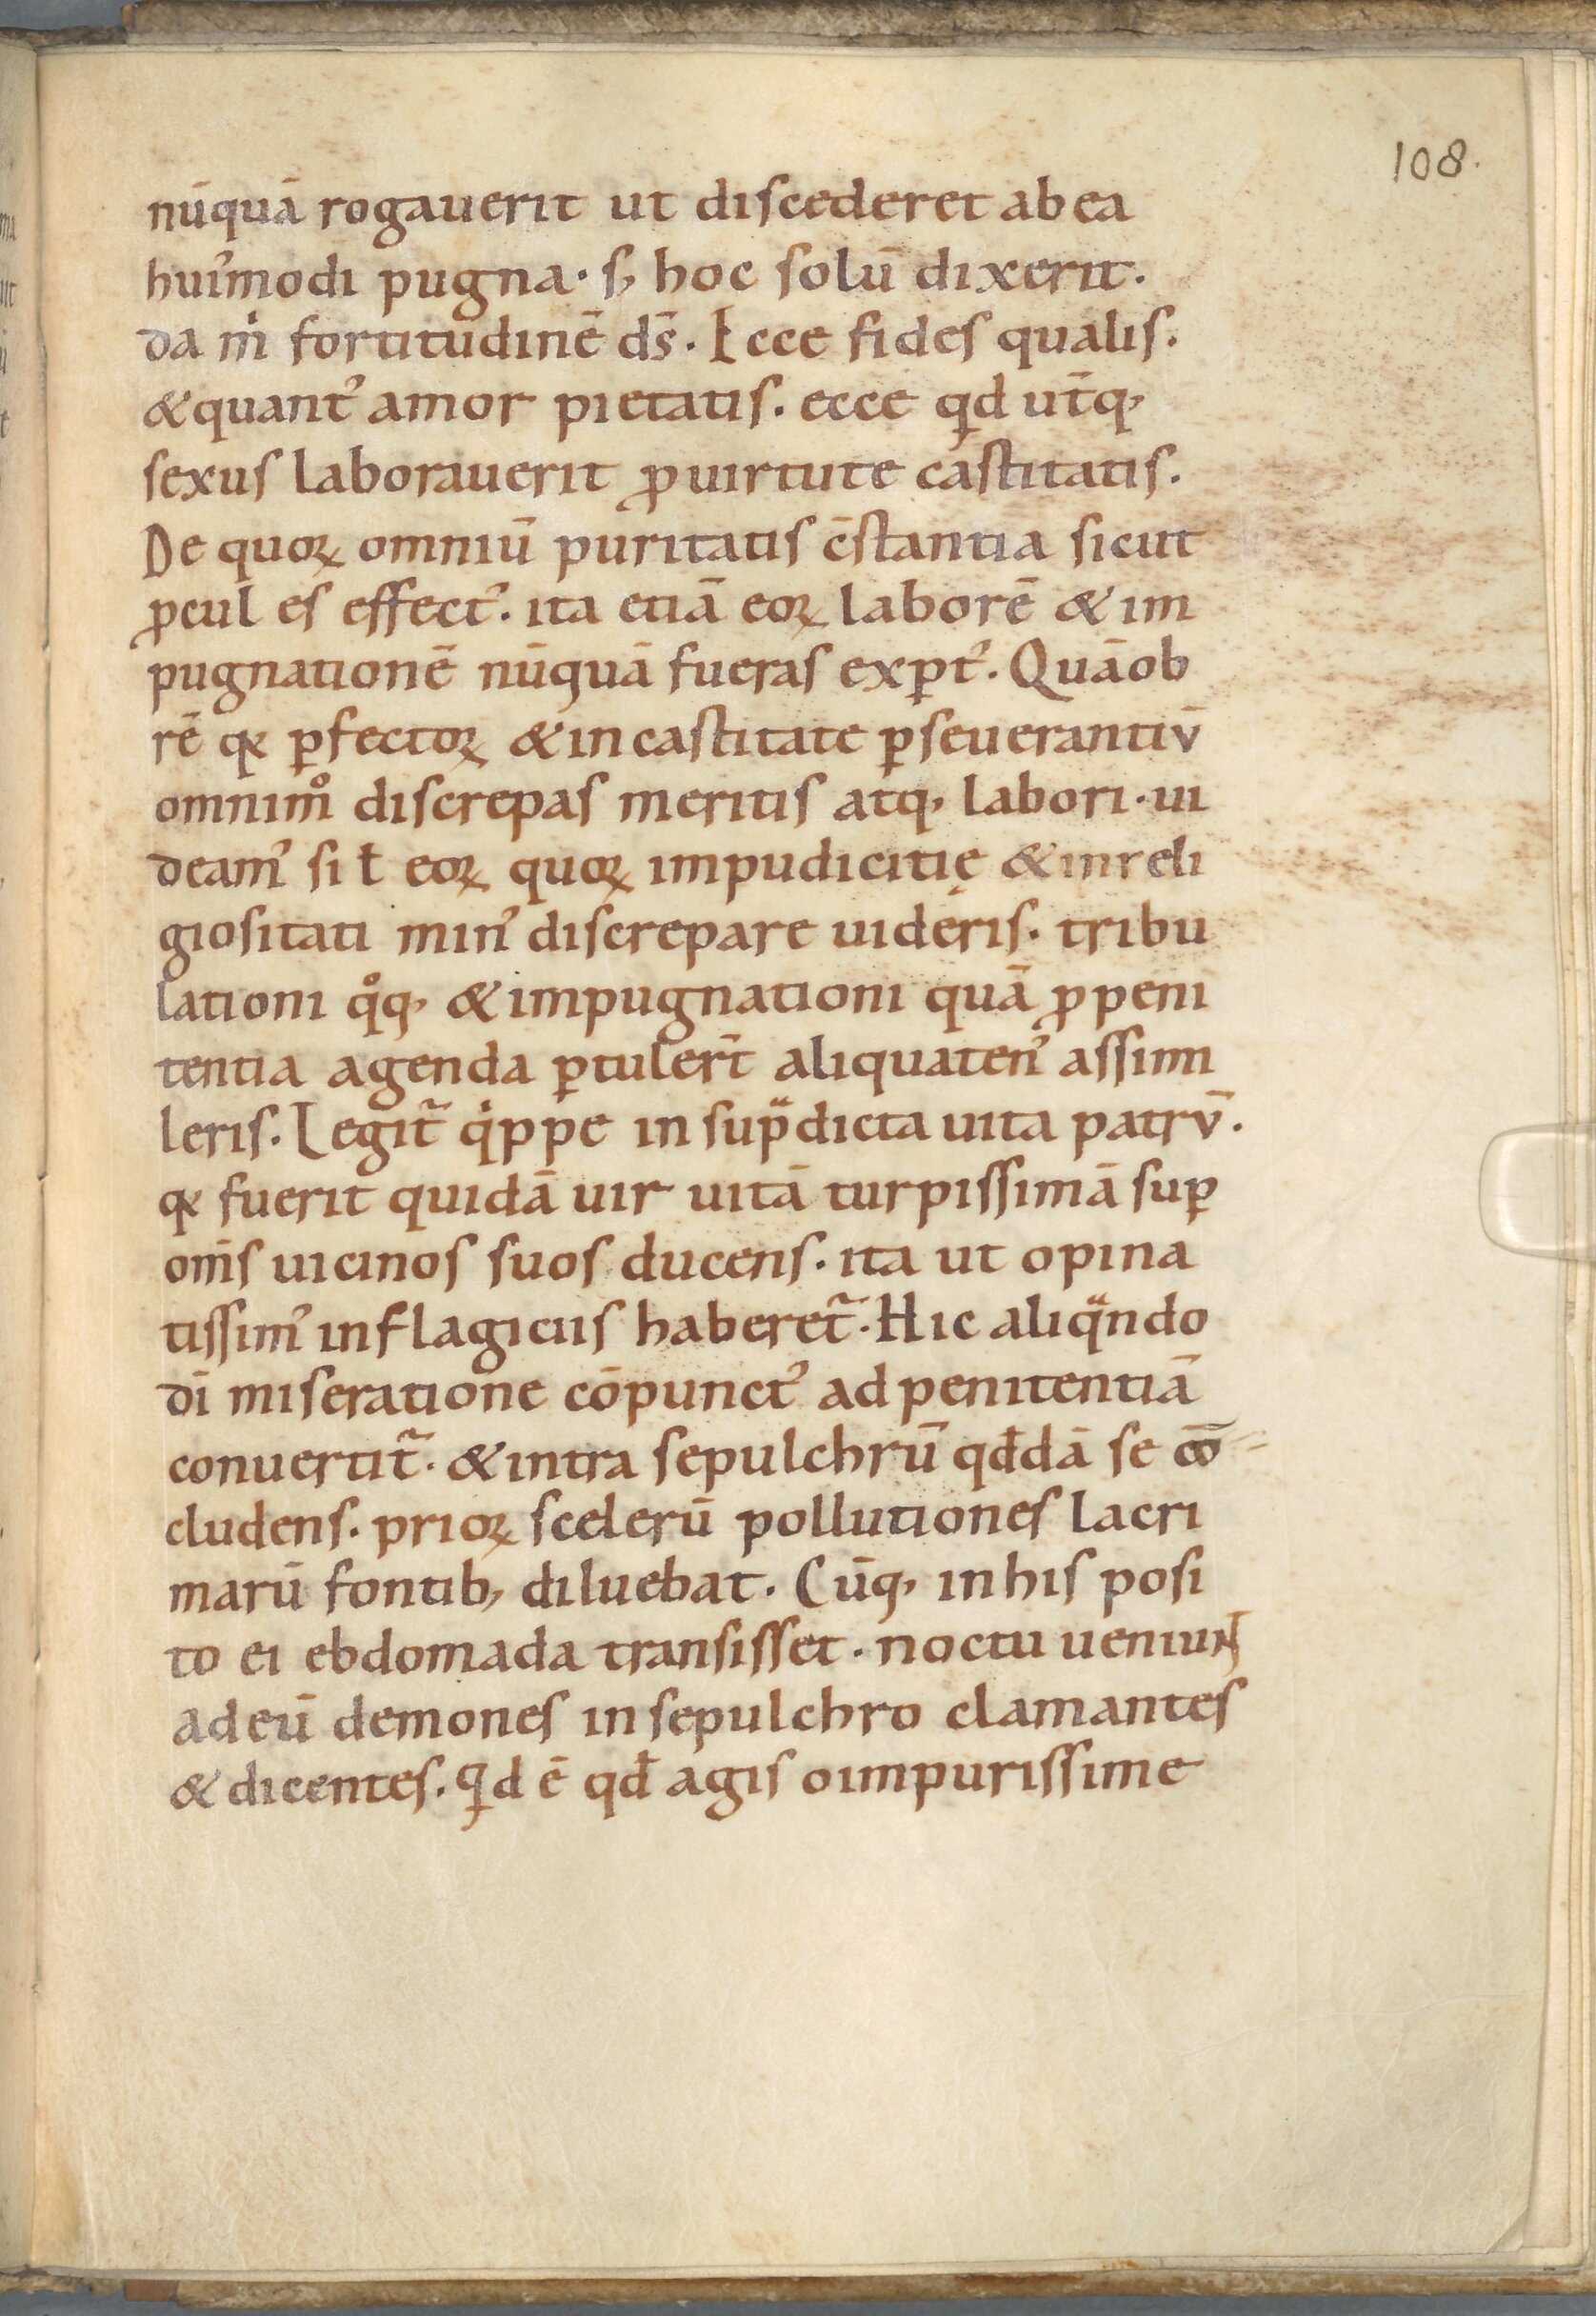 108.
nūquā rogauerit ut discederet ab ea
hui᾽modi pugna · s; hoc solū dixerit.
da m̍ fortitudinē ds̄. Ecce fides qualis.
& quant᾽ amor pietatis. ecce qd ut̄q;
sexus laborauerit ꝓ uirtute castitatis.
De quoꝝ omniū puritatis c̄stantia sicut
ꝓcul es effect᾽. ita etiā eoꝝ laborē & im
pugnationē nūquā fueras exꝑt᾽. Quāob
rē qꝛ ꝑfectoꝝ & in castitate ꝑseuerantiū
omnimͦ discrepas meritis atq; labori · ui
deam᾽ si ł eoꝝ quoꝝ impudicitię & inreli
giositati min᾽ discrepare uideris. tribu
lationi qͦq; & impugnationi quā ꝓ peni
tentia agenda ꝑtulert̄ aliquaten᾽ assimi
leris. Legit̃ qͥppe in supᷓdicta uita patrū.
qꝛ fuerit quidā uir uitā turpissimā suꝑ
om̄s uicinos suos ducens. ita ut opina
tissim᾽ in flagiciis haberet̃. Hic aliqᷓndo
dī miseratione cōpunct᾽ ad penitentiā
conuertit̃. & intra sepulchrū qđdā se cō
cludens. prioꝝ scelerū pollutiones lacri
marū fontib; diluebat. Cūq; in his posi
to ei ebdomada transisset. noctu ueniunt
ad eū demones in sepulchro clamantes
& dicentes. qd ē qđ agis o impurissime